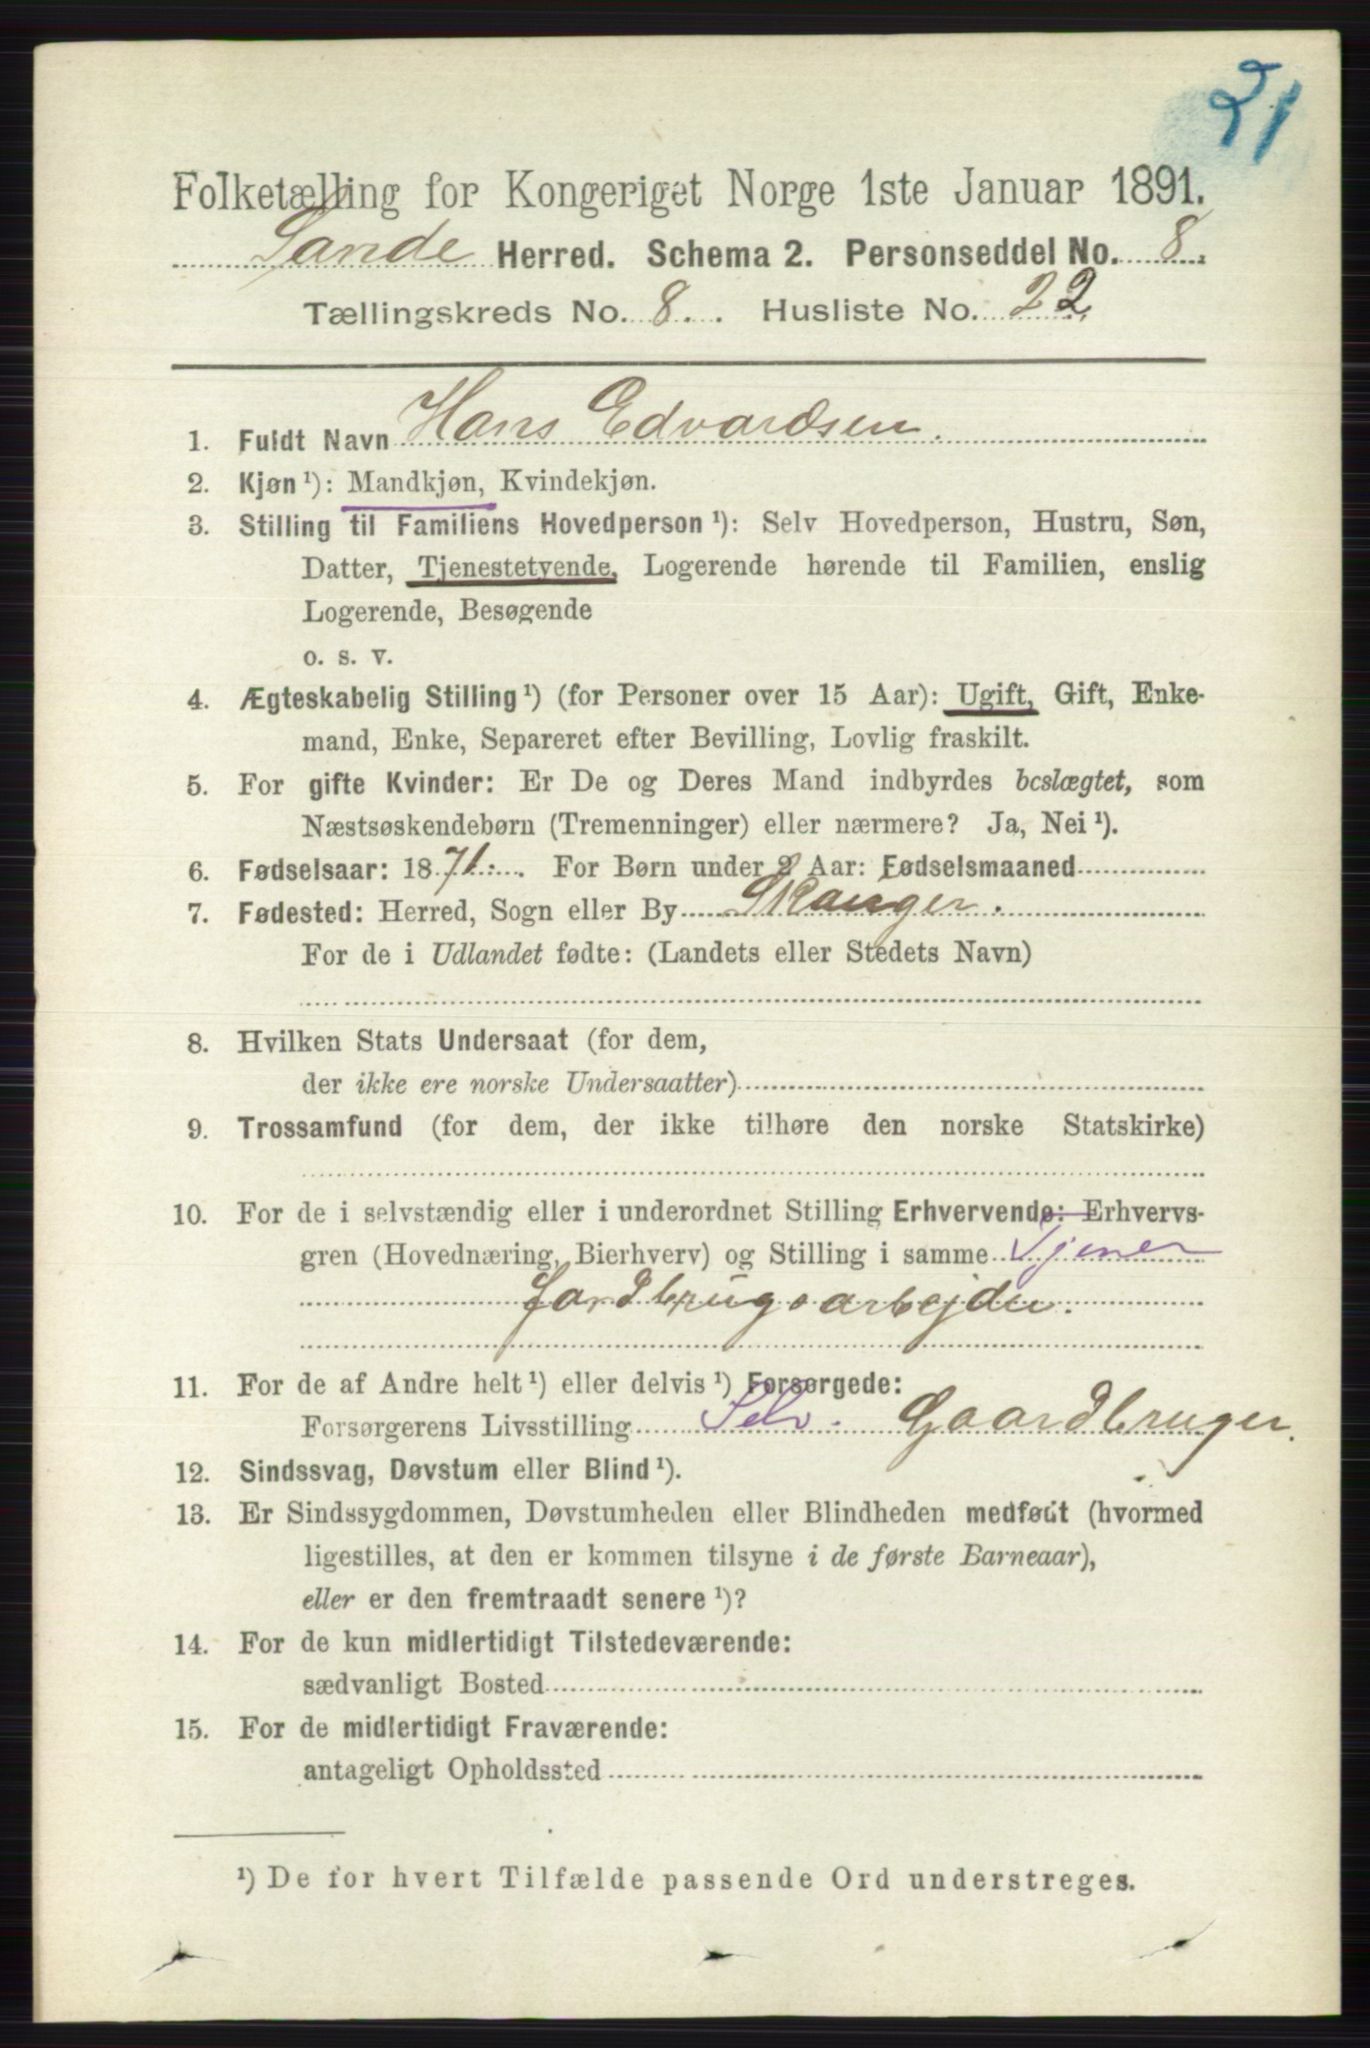 21
Folketælling for Kongeriget Norge 1ste Januar 1891.
Sande Herred. Schema 2. Personseddel No. 8.
Tællingskreds No. 8. Husliste No. 22
1. Fuldt Navn Hans Edvardsen.
2. Kjøn ¹): Mandkjøn, Kvindekjøn.
3. Stilling til Familiens Hovedperson ¹): Selv Hovedperson, Hustru, Søn,
Datter, Tjenestetyende, Logerende hørende til Familien, enslig
Logerende, Besøgende
o. s. v.
4. Ægteskabelig Stilling ¹) (for Personer over 15 Aar): Ugift, Gift, Enke-
mand, Enke, Separeret efter Bevilling, Lovlig fraskilt.
5. For gifte Kvinder: Er De og Deres Mand indbyrdes beslægtet, som
Næstsøskendebørn (Tremenninger) eller nærmere? Ja, Nei ¹).
6. Fødselsaar: 1871. For Børn under 2 Aar: Fødselsmaaned
7. Fødested: Herred, Sogn eller By Skauger.
For de i Udlandet fødte: (Landets eller Stedets Navn)
8. Hvilken Stats Undersaat (for dem,
der ikke ere norske Undersaatter)
9. Trossamfund (for dem, der ikke tilhøre den norske Statskirke)
10. For de i selvstændig eller i underordnet Stilling Erhvervende: Erhvervs-
gren (Hovednæring, Bierhverv) og Stilling i samme Tjener
Jordbrugsarbejder.
11. For de af Andre helt ¹) eller delvis ¹) Forsørgede:
Forsørgerens Livsstilling Selv. Gaardbruger.
12. Sindssvag, Døvstum eller Blind ¹).
13. Er Sindssygdommen, Døvstumheden eller Blindheden medfødt (hvormed
ligestilles, at den er kommen tilsyne i de første Barneaar),
eller er den fremtraadt senere ¹)?
14. For de kun midlertidigt Tilstedeværende:
sædvanligt Bosted
15. For de midlertidigt Fraværende:
antageligt Opholdssted
¹) De for hvert Tilfælde passende Ord understreges.